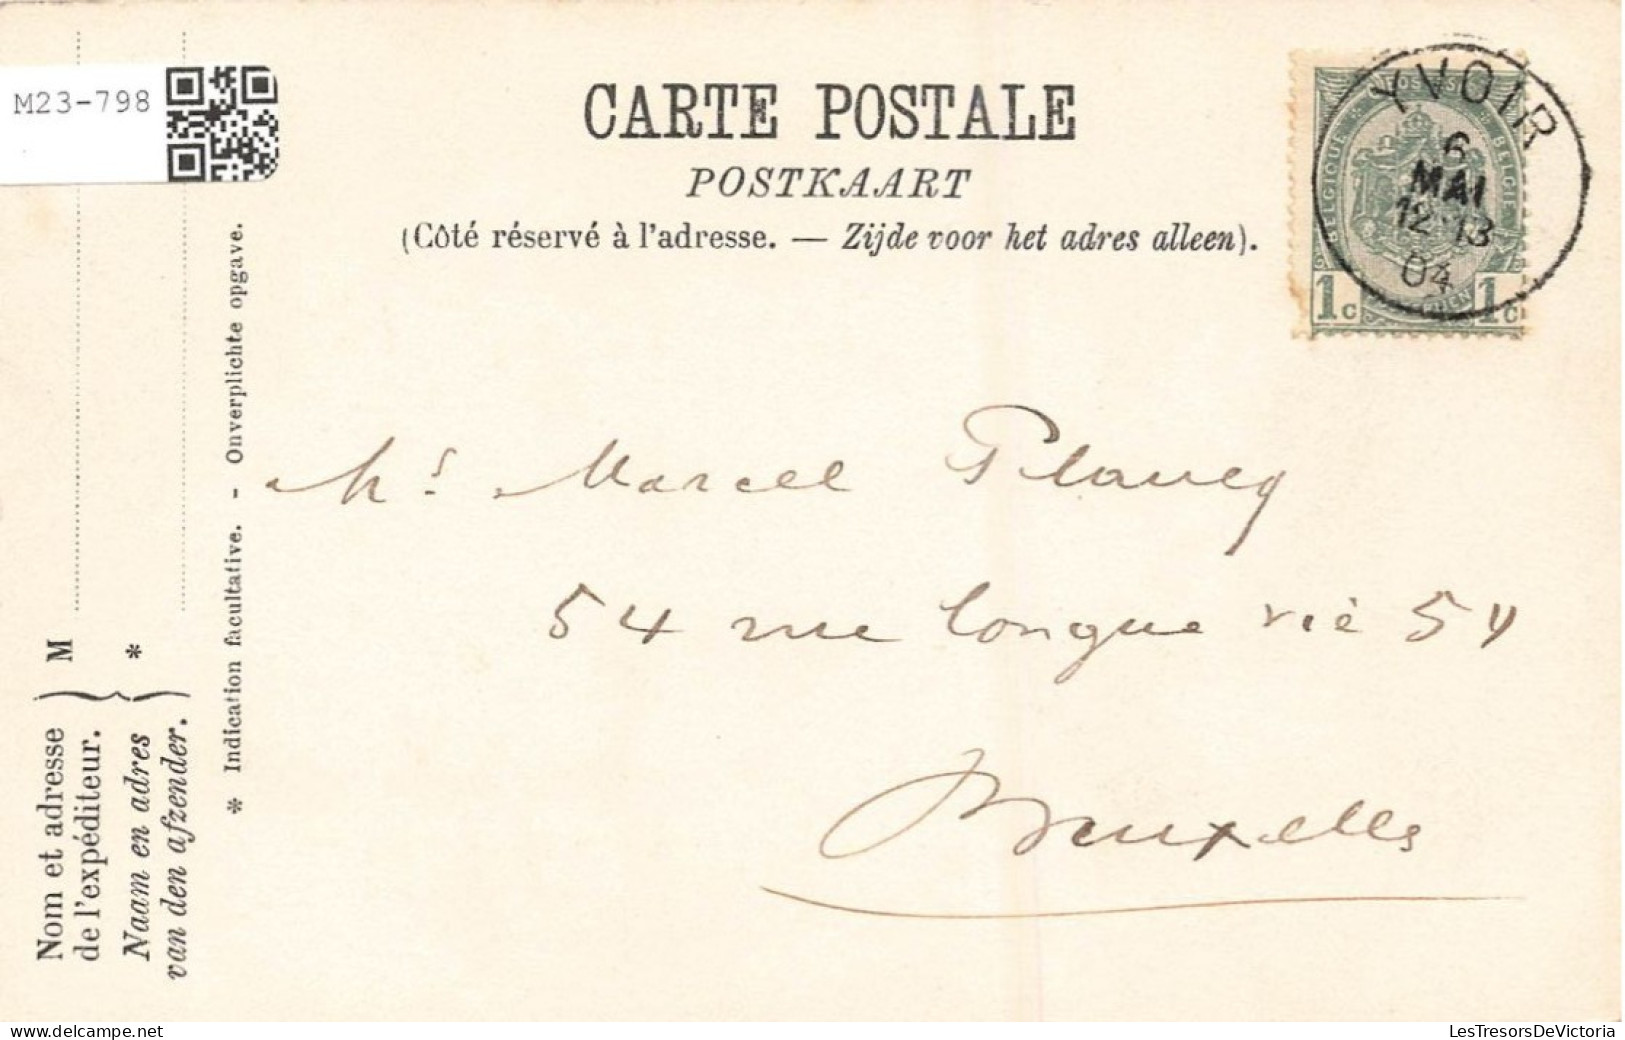 M23-798
CARTE POSTALE
POSTKAART
(Côté réservé à l'adresse. — Zijde voor het adres alleen).
YVOIR
6
MAI
12-13
04
POSTES
BELGIQUE
BELGIE
1c 1c
Mr Marcel Plancq
54 rue longue vie 54
Bruxelles
Nom et adresse
de l'expéditeur.
M
Naam en adres
van den afzender.
*
* Indication facultative. - Onverplichte opgave.
LesTresorsDeVictoria